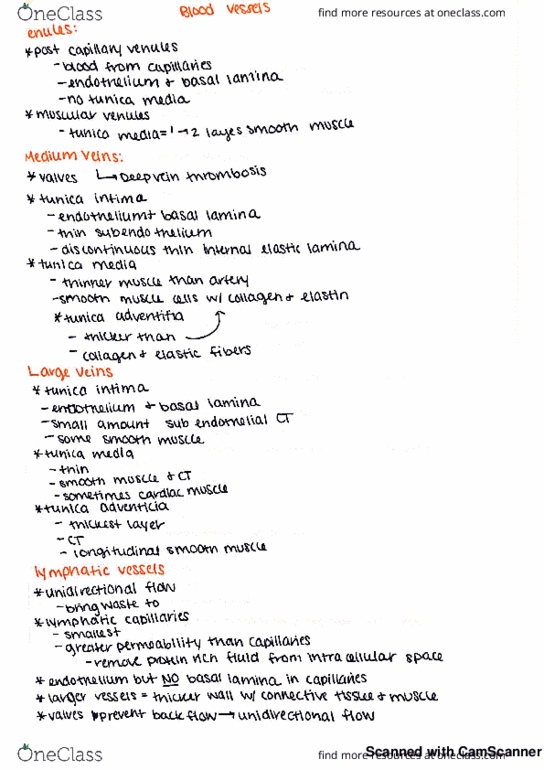 OneClass
Blood vessels
find more resources at oneclass.com
enules:
*post capillary venules
-blood from capillaries
-endothelium + basal lamina
-no tunica media
*muscular venules
-tunica media=1→2 layes smooth muscle
Medium Veins:
*valves ↳Deepvein thrombosis
*tunica intima
-endothelium+ basal lamina
-thin subendothelium
-discontinuous thin internal elastic lamina
*tunica media
-thinner muscle than artery
-smooth muscle cells w/ collagen + elastin
*tunica adventitia
-thicker than
-collagen + elastic fibers
Large veins
*tunica intima
-endothelium + basal lamina
-small amount sub endothelial CT
-some smooth muscle
*tunica media
-thin
-smooth muscle + CT
-sometimes cardiac muscle
*tunica adventicia
-thickest layer
-CT
-longitudinal smooth muscle
lymphatic vessels
*unidirectional flow
-bring waste to
*lymphatic capillaries
-smallest
-greater permeability than capillaries
-remove protein rich fluid from intracellular space
*endothelium but NO basal lamina in capillaries
*larger vessels = thicker wall w/ connective tissue + muscle
*valves prevent back flow → unidirectional flow
OneClass
find more resources at oneclass.com
Scanned with CamScanner